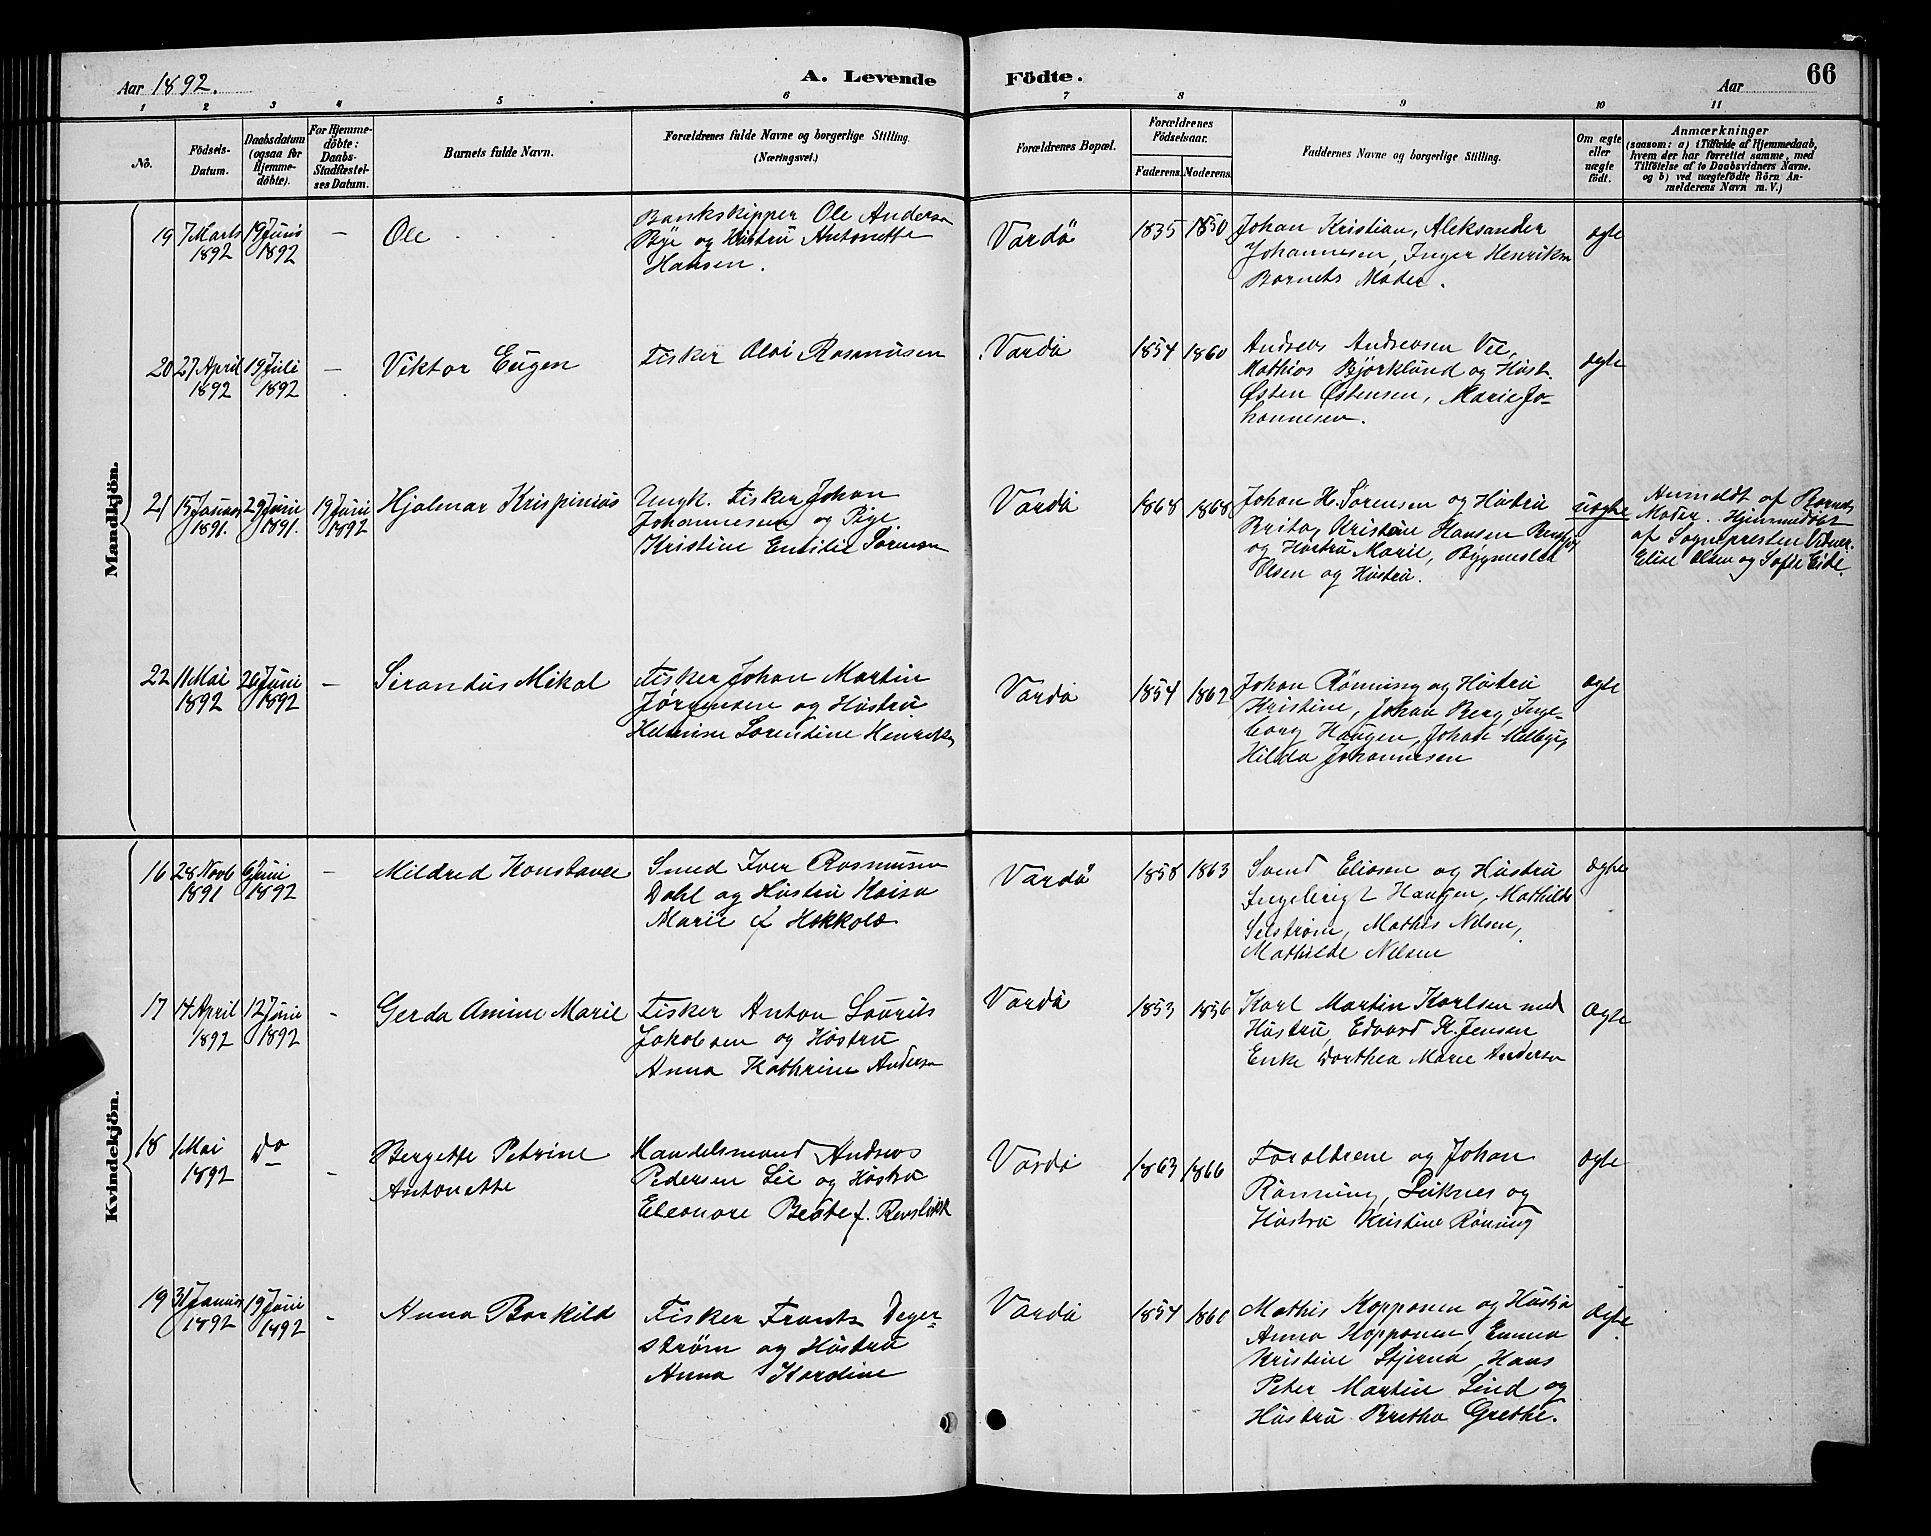 Aar 1892. A. Levende Födte. Aar 66
1 2 3 4 5 6 7 8 9 10 11
Nô. Födsels-Datum. Daabsdatum (ogsaa for Hjemme-döbte). For Hjemme-döbte: Daabs-Stadfæstel-ses Datum. Barnets fulde Navn. Forældrenes fulde Navne og borgerlige Stilling. (Næringsvei.) Forældrenes Bopæl. Forældrenes Födselsaar. Faderens. Moderens. Faddernes Navne og borgerlige Stilling. Om ægte eller uægte födt.
Anmærkninger
(saasom: a) i Tilfælde af Hjemmedaab,
hvem der har forrettet samme, med
Tilföielse af to Daabsvidners Navne.
og b) ved uægtefödte Börn An-
melderens Navn m. V.)
Mandkjön.
19 7 Marts 1892 19 Juni 1892 – Ole
Bankskipper Ole Anderso
Bye og Hustru Antonette
Hansen.
Vardö 1835 1850
Johan Kristian, Aleksander
Johannesen, Inger Henriksn
Barnets Moder.
ægte
20 27 April 1892 19 Juli 1892 – Viktor Eugen
Fisker Olai Rasmusen
Vardö 1854 1860
Andreas Andreasen Vee,
Mathias Björklund og Hust.
Østen Østensen, Marie Jo-
hannesen.
ægte
21 15 Januar 1891. 29 Juni 1891. 19 Juni 1892 Hjalmar Krispinius
Ungk. Fisker Johan
Johannesen og Pige.
Kristine Emilie Sorensen
Vardö 1868 1868
Johan H. Sorensen og Hustru
Brita, Kristine Hansen
og Hustru Marie,
Olsen og Hustru.
uægte
Anmeldt af Barnets
Moder. Hjemmedöbt
af Sognepresten Vidner.
Elise Olsen og Sofie Eide.
22 11 Mai 1892 26 Juni 1892 – Sirandus Mikal
Fisker Johan Martin
Jørgensen og Hustru
Helmine Sorentine Henriks
Vardö 1854 1862
Johan Rönning og Hustru
Kristine, Johan Berg, Inge-
borg Haugen, Johan Melbye,
Hilda Johannesen
ægte
Kvindekjön.
16 28 Novb 1891 6 Juni 1892 – Mildred Konstance
Smed Iver Rasmusen
Dahl og Hustru Kaisa
Marie f. Hakkola
Vardö 1858 1863
Svend Eliasen og Hustru
Ingebrigt Haugen, Mathilde
Selström, Mathis Nilsen,
Mathilde Nilsen
ægte
17 14 April 1892 12 Juni 1892 – Gerda Amine Marie
Fisker Anton Laurits
Jakobsen og Hustru
Anna Kathrine Anderson
Vardö 1853 1856
Karl Martin Karlsen med
Hustru, Edvard K. Jensen
Enke Dorthea Marie Anderson
Ægte
18 1 Mai 1892 Do –
Bergette Petrine
Antonette
Handelsmand Andreas
Pedersen Lie og Hustru
Eleonore Beate f.
Vardö 1863 1866
Foraldrene og Johan
Rönning, Leiknes og
Hustru Kristine Röning
ægte
19 31 Januar 1892 19 Juni 1892 – Anna Barkild
Fisker Frants Deger-
ström og Hustru
Anna Karoline
Vardö 1854 1860
Mathis Kopponen og Hustru
Anna Kopponen, Emma
Kristine Stjerna, Hans
Peter Martin Lind og
Hustru Bretha Grethe.
Ægte